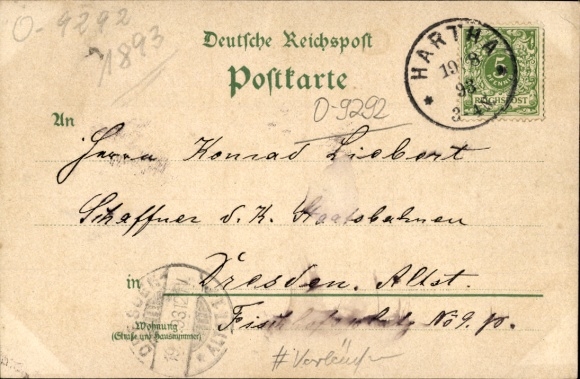 O-9292
1893
Deutsche Reichspost
Postkarte
HARTHA
19 8
93
3-4
5
REICHSPOST
O-9292
An
Herrn Konrad Liebert
Schaffner d. K. Staatsbahnen
in Dresden, Altst.
Wohnung
(Straße und Hausnummer)
No 9. p.
#Vorläufer